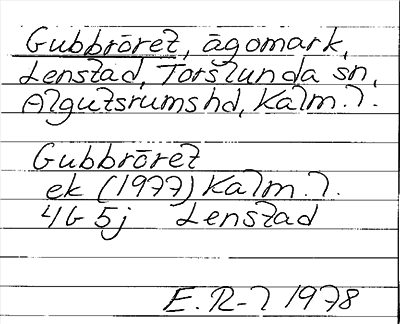 Gubbröret, ägomark,
Lenstad, Torslunda sn,
Algutsrums hd, Kalm. l.
Gubbröret
ek (1977) Kalm. l.
4G 5j Lenstad
E. R-l 1978